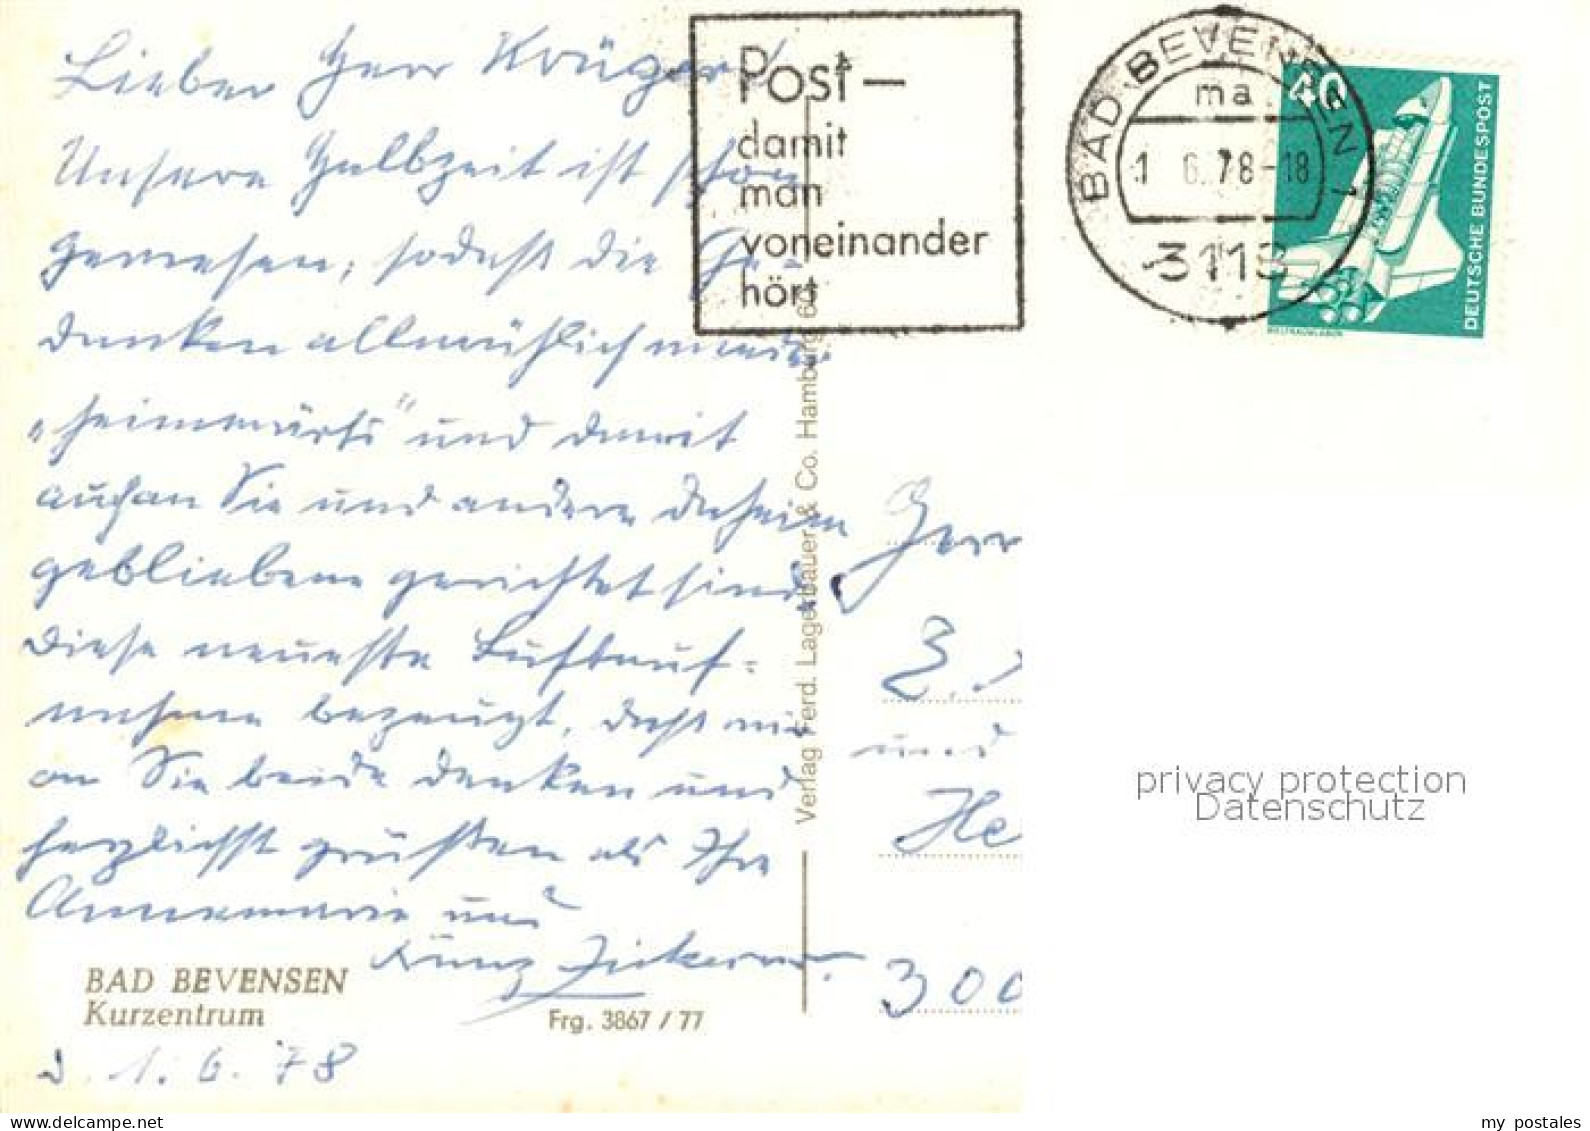 Lieber Herr Krüger!
Unsere Halbzeit ist schon
gewesen, sodaß die Ge-
danken allmählich mehr
„heimwärts" und damit
auch an Sie und andere daheim
gebliebene gerichtet sind.
Diese neueste Luftauf-
nahme bezeugt, daß wir
an Sie beide denken und
herzlichst grüßen als Ihre
Annemarie und
BAD BEVENSEN
Kurzentrum
Frg. 3867 / 77
d. 1.6.78
Verlag Ferd. Lagerbauer & Co. Hamburg
Post –
damit
man
voneinander
hört
BAD BEVENSEN 1
ma
1 6.78-18
40
DEUTSCHE BUNDESPOST
WELTRAUMLABOR
Herr
und
He
300
privacy protection
Datenschutz
my postales